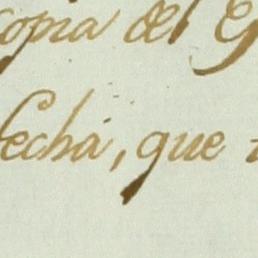 copia del
fecha, que